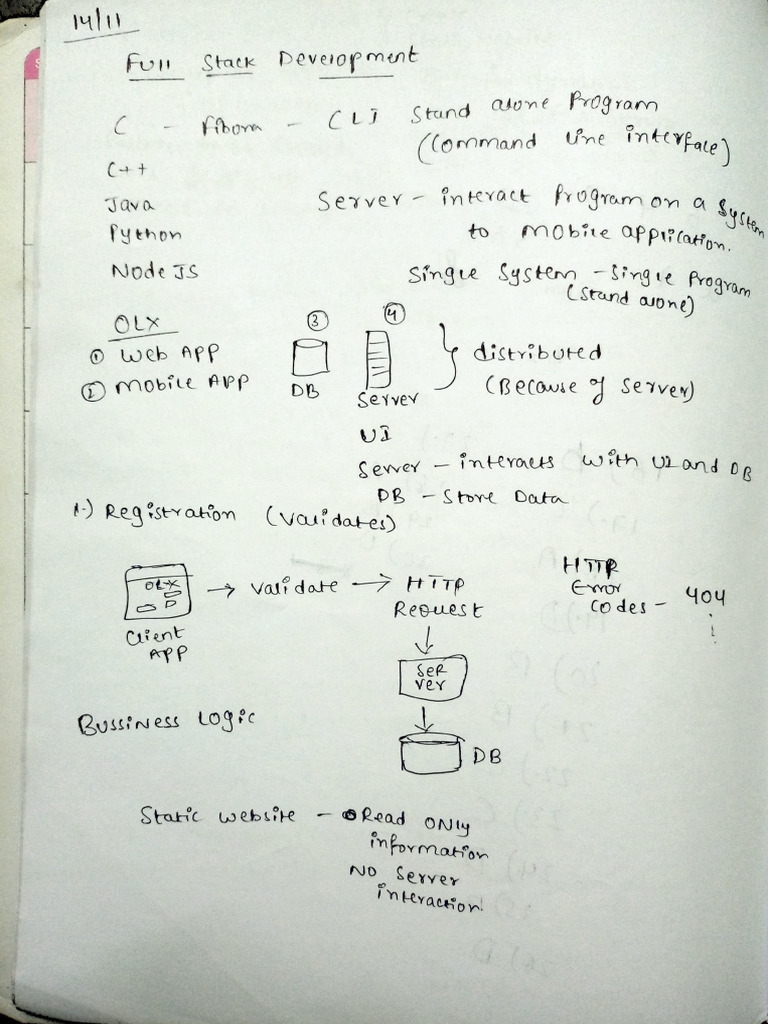 14/11
Full Stack Development
C - Fibona - CLI Stand alone Program
(Command line interface)
C++
Java
Server - interact Program on a System
Python
to mobile application.
Node JS
Single System - Single Program
(Stand alone)
OLX
① Web APP
② Mobile APP
③
DB
④
Server
} distributed
(Because of Server)
UI
Server - interacts with UI and DB
DB - Store Data
1.) Registration (Validates)
OLX
Client
APP
→ Validate → HTTP
Request
HTTP
Error
Codes - 404
↓
SER
VER
↓
DB
Bussiness Logic
Static website - Read Only
information
No Server
interaction.